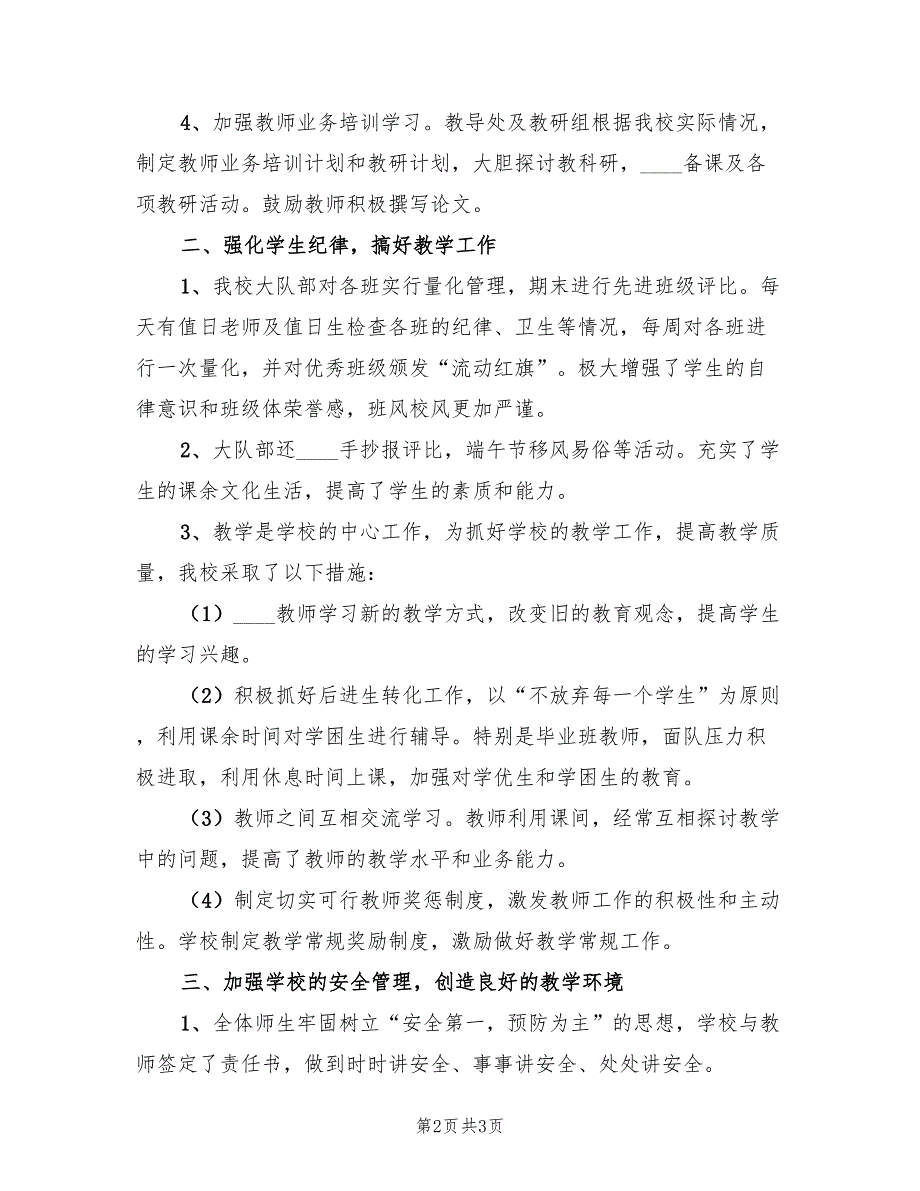 4、加强教师业务培训学习。教导处及教研组根据我校实际情况，
制定教师业务培训计划和教研计划，大胆探讨教科研，____备课及各
项教研活动。鼓励教师积极撰写论文。
二、强化学生纪律，搞好教学工作
1、我校大队部对各班实行量化管理，期末进行先进班级评比。每
天有值日老师及值日生检查各班的纪律、卫生等情况，每周对各班进
行一次量化，并对优秀班级颁发“流动红旗”。极大增强了学生的自
律意识和班级体荣誉感，班风校风更加严谨。
2、大队部还____手抄报评比，端午节移风易俗等活动。充实了学
生的课余文化生活，提高了学生的素质和能力。
3、教学是学校的中心工作，为抓好学校的教学工作，提高教学质
量，我校采取了以下措施：
（1）____教师学习新的教学方式，改变旧的教育观念，提高学生
的学习兴趣。
（2）积极抓好后进生转化工作，以“不放弃每一个学生”为原则
，利用课余时间对学困生进行辅导。特别是毕业班教师，面队压力积
极进取，利用休息时间上课，加强对学优生和学困生的教育。
（3）教师之间互相交流学习。教师利用课间，经常互相探讨教学
中的问题，提高了教师的教学水平和业务能力。
（4）制定切实可行教师奖惩制度，激发教师工作的积极性和主动
性。学校制定教学常规奖励制度，激励做好教学常规工作。
三、加强学校的安全管理，创造良好的教学环境
1、全体师生牢固树立“安全第一，预防为主”的思想，学校与教
师签定了责任书，做到时时讲安全、事事讲安全、处处讲安全。
第2页 共3页